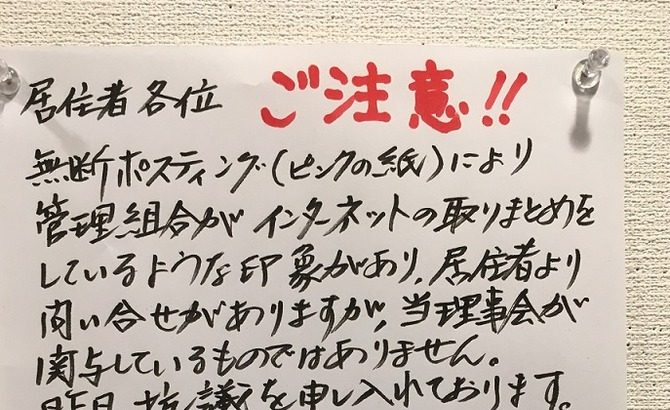 居住者各位 ご注意!!
無断ポスティング(ピンクの紙)により
管理組合がインターネットの取りまとめを
しているような印象があり、居住者より
問い合せがありますが、当理事会が
関与しているものではありません。
昨日、抗議を申し入れております。